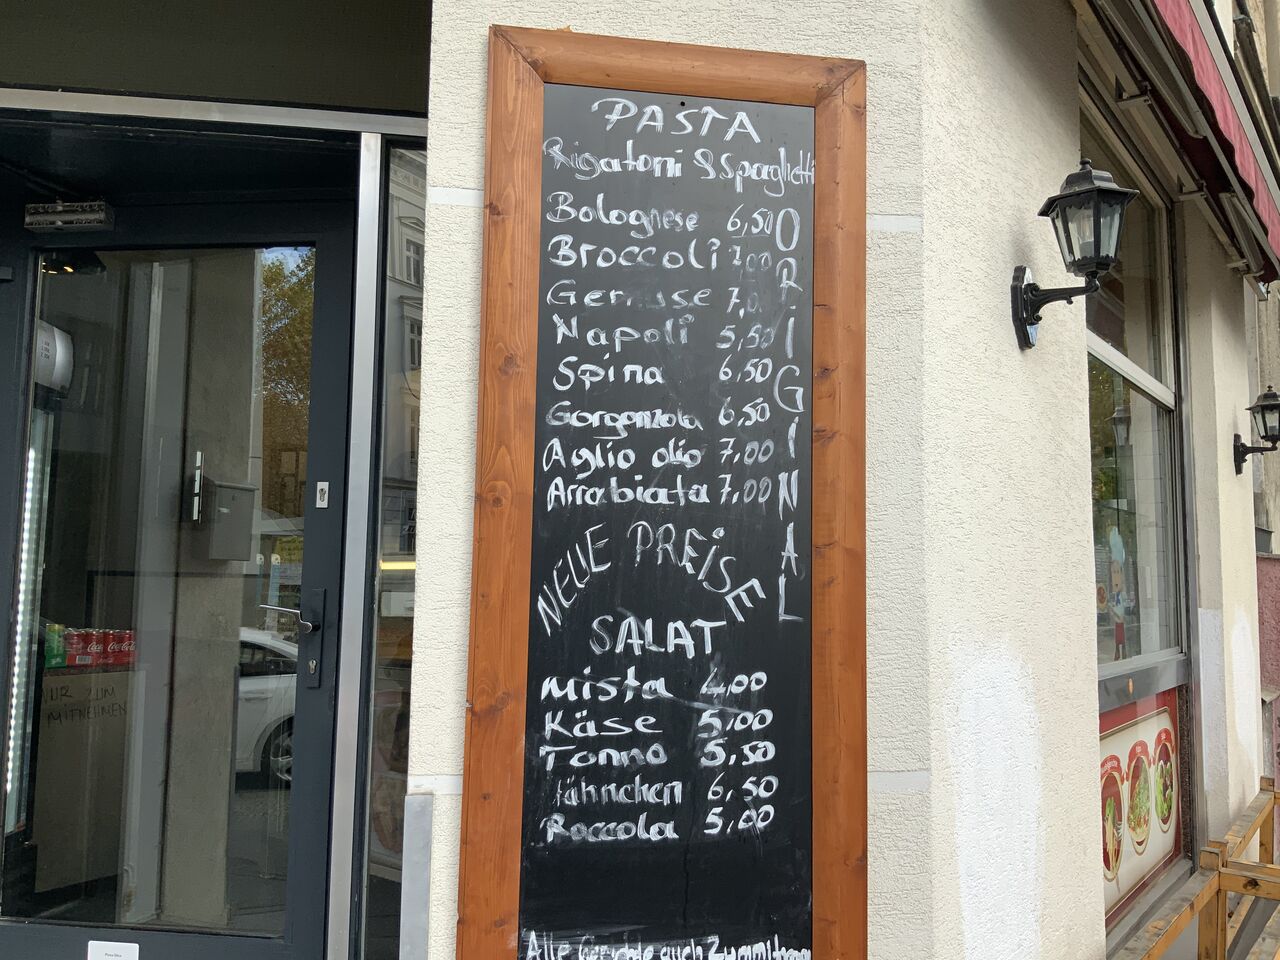 PASTA
Rigatoni & Spaglietti
Bolognese 6,50
Broccoli 7,00
Gemuse 7,0
Napoli 5,50
Spina 6,50
Gorgonzola 6,50
Aglio olio 7,00
Arrabiata 7,00
ORIGINAL
NEUE PREISE
SALAT
Mista 4,00
Käse 5,00
Tonno 5,50
Hähnchen 6,50
Roccola 5,00
Alle Gerichte auch Zum
NUR ZUM
MITNEHMEN
Coca-Cola